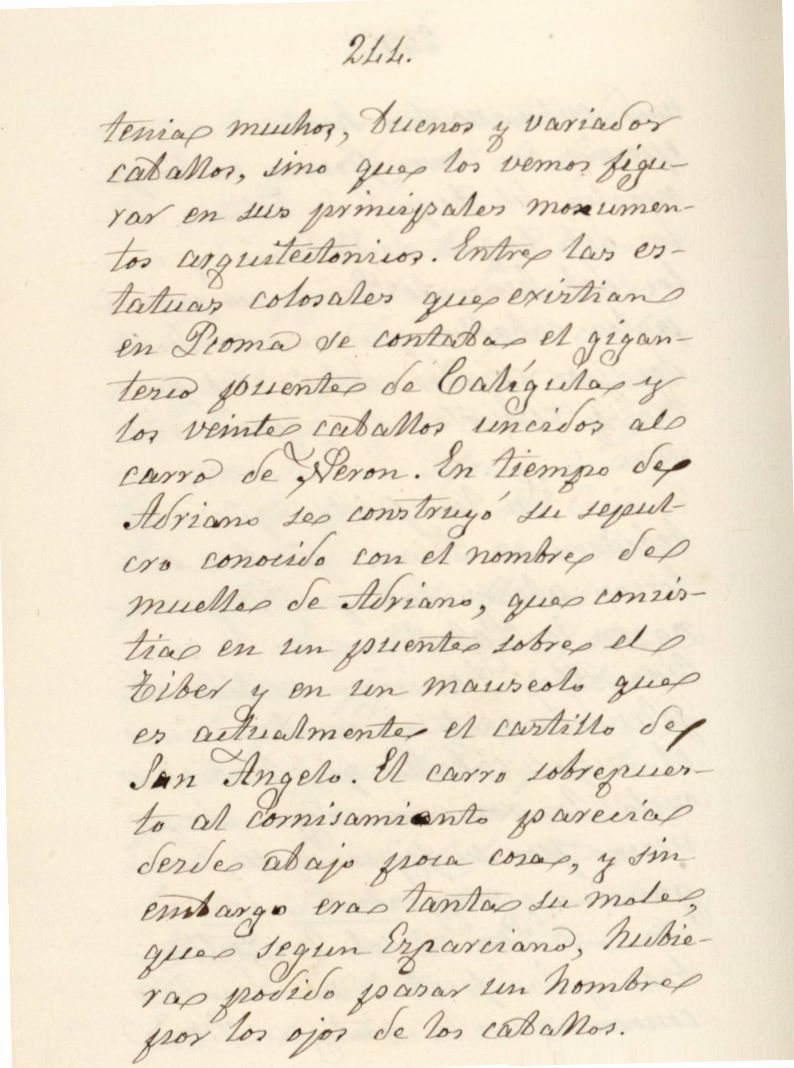 244.
tenia muchos, buenos y variados
caballos, sino que los vemos figu-
rar en sus principales monumen-
tos arquitectonicos. Entre las es-
tatuas colosales que existian
en Roma se contaba el gigan-
tesco puente de Calígula y
los veinte caballos uncidos al
carro de Neron. En tiempo de
Adriano se construyó su sepul-
cro conocido con el nombre de
muelle de Adriano, que consis-
tia en un puente sobre el
Tiber y en un mauseolo que
es actualmente el castillo de
San Angelo. El carro sobrepues-
to al cornisamiento parecia
desde abajo poca cosa, y sin
embargo era tanta su mole,
que segun Esparciano, hubie-
ra podido pasar un hombre
por los ojos de los caballos.